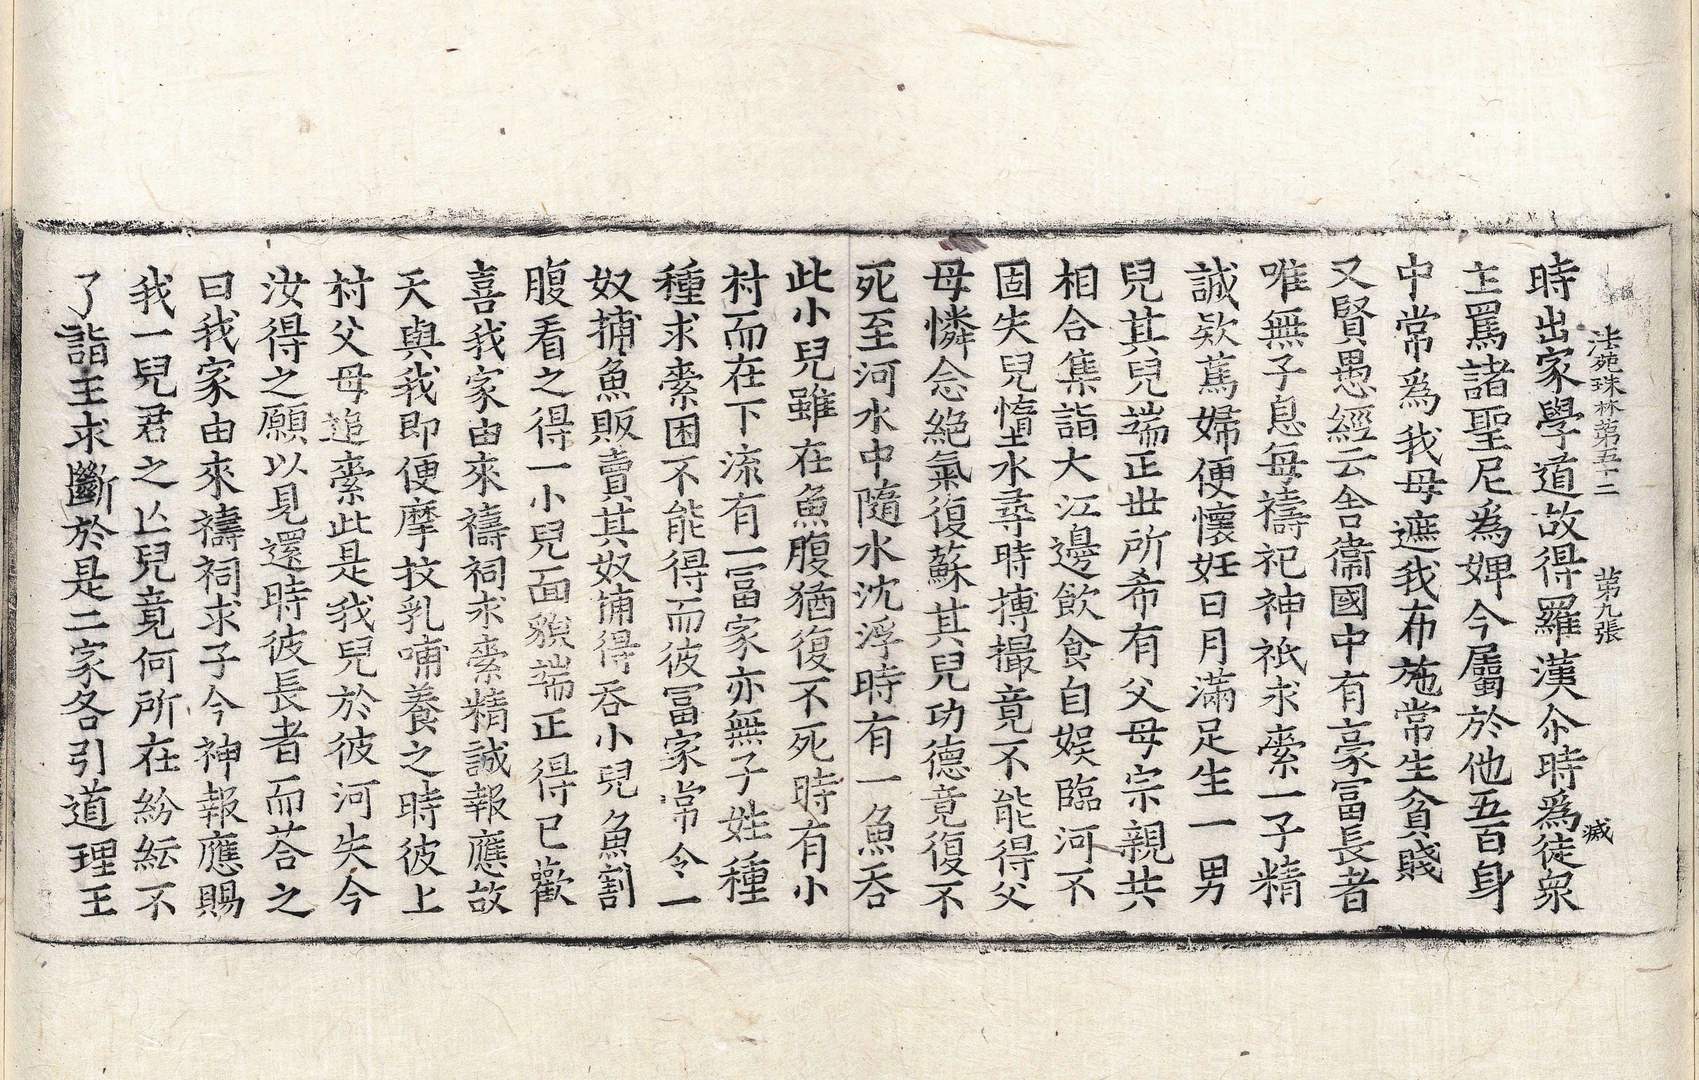 法苑珠林第五十二 第九張 滅
時出家學道故得羅漢尒時爲徒衆
主罵諸聖尼爲婢今屬於他五百身
中常爲我母遮我布施常生貧賤
又賢愚經云舍衞國中有豪冨長者
唯無子息每禱祀神祇求索一子精
誠欵篤婦便懷妊日月滿足生一男
兒其兒端正世所希有父母宗親共
相合集詣大江邊飲食自娛臨河不
固失兒墮水尋時搏撮竟不能得父
母憐念絕氣復蘇其兒功德竟復不
死至河水中隨水沈浮時有一魚吞
此小兒雖在魚腹猶復不死時有小
村而在下流有一冨家亦無子姓種
種求索困不能得而彼冨家常令一
奴捕魚販賣其奴捕得吞小兒魚割
腹看之得一小兒面貌端正得已歡
喜我家由來禱祠求索精誠報應故
天與我即便摩抆乳哺養之時彼上
村父母追索此是我兒於彼河失今
汝得之願以見還時彼長者而荅之
曰我家由來禱祠求子今神報應賜
我一兒君之亾兒竟何所在紛紜不
了詣王求斷於是二家各引道理王